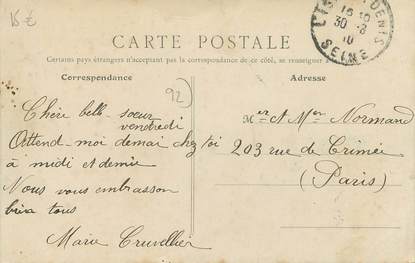 15 €
L'ILE ST DENIS
15 10
30 -8
10
SEINE
CARTE POSTALE
Certains pays étrangers n'acceptant pas la correspondance de ce côté, se renseigner
Correspondance
Adresse
92
Chère belle-soeur
vendredi
Attend-moi demai chez toi
à midi et demie
Nous vous embrasson
bien tous
Marie Cruvellier
Mer et Mer Normand
203 rue de Crimée
(Paris)